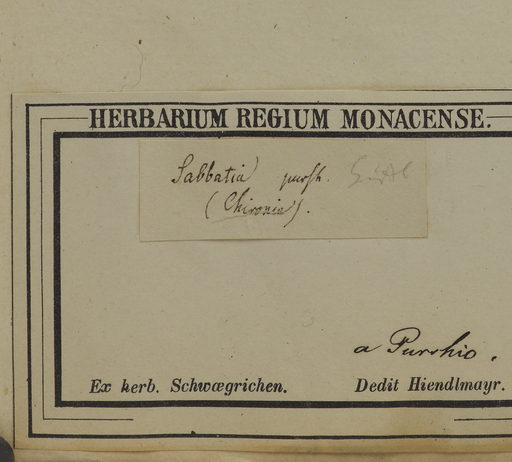 HERBARIUM REGIUM MONACENSE.
Sabbatia pursh.
(Chironia).
a Purshio.
Ex herb. Schwægrichen. Dedit Hiendlmayr.